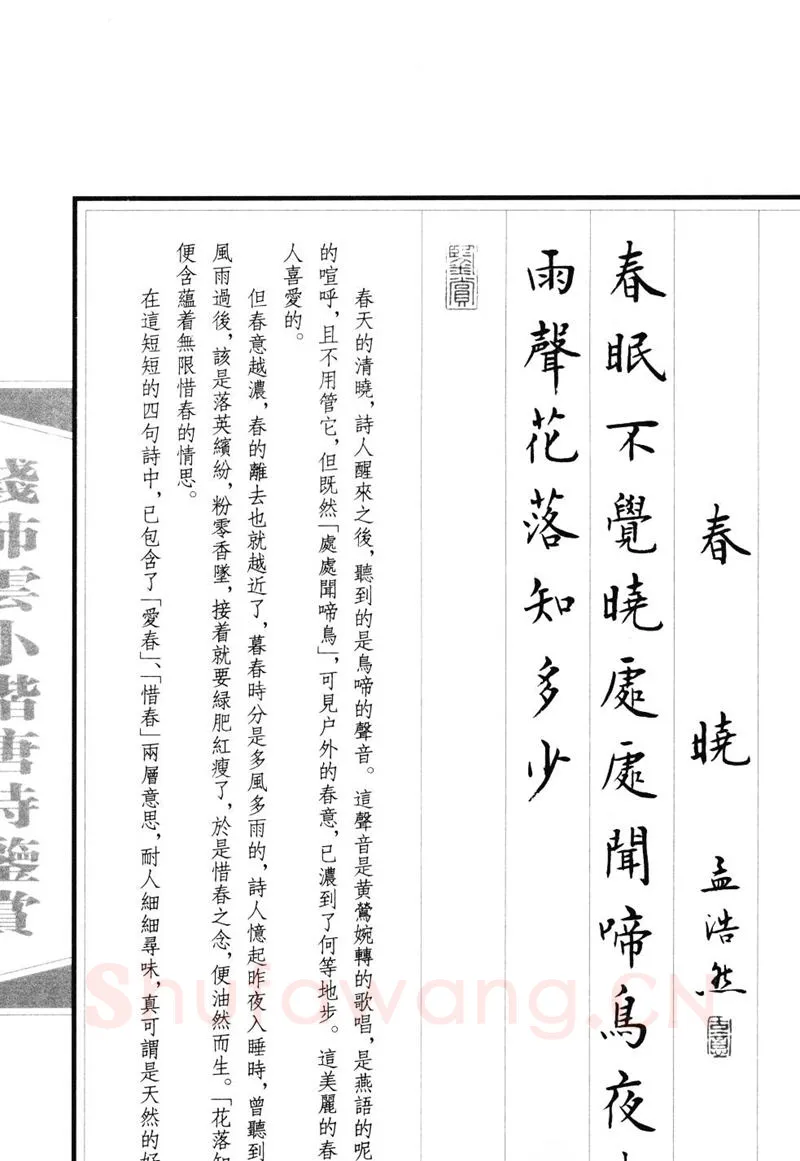 春曉 孟浩然
春眠不覺曉處處聞啼鳥夜
雨聲花落知多少
春天的清曉，詩人醒來之後，聽到的是鳥啼的聲音。這聲音是黄鶯婉轉的歌唱，是燕語的呢
的喧呼，且不用管它，但既然「處處聞啼鳥」，可見户外的春意，已濃到了何等地步。這美麗的春
人喜愛的。
但春意越濃，春的離去也就越近了，暮春時分是多風多雨的，詩人憶起昨夜入睡時，曾聽到
風雨過後，該是落英繽紛，粉零香墜，接着就要緑肥紅瘦了，於是惜春之念，便油然而生。「花落知
便含蘊着無限惜春的情思。
在這短短的四句詩中，已包含了「愛春」、「惜春」兩層意思，耐人細細尋味，真可謂是天然的好
錢沛雲小楷唐詩鑒賞
Shufawang.CN